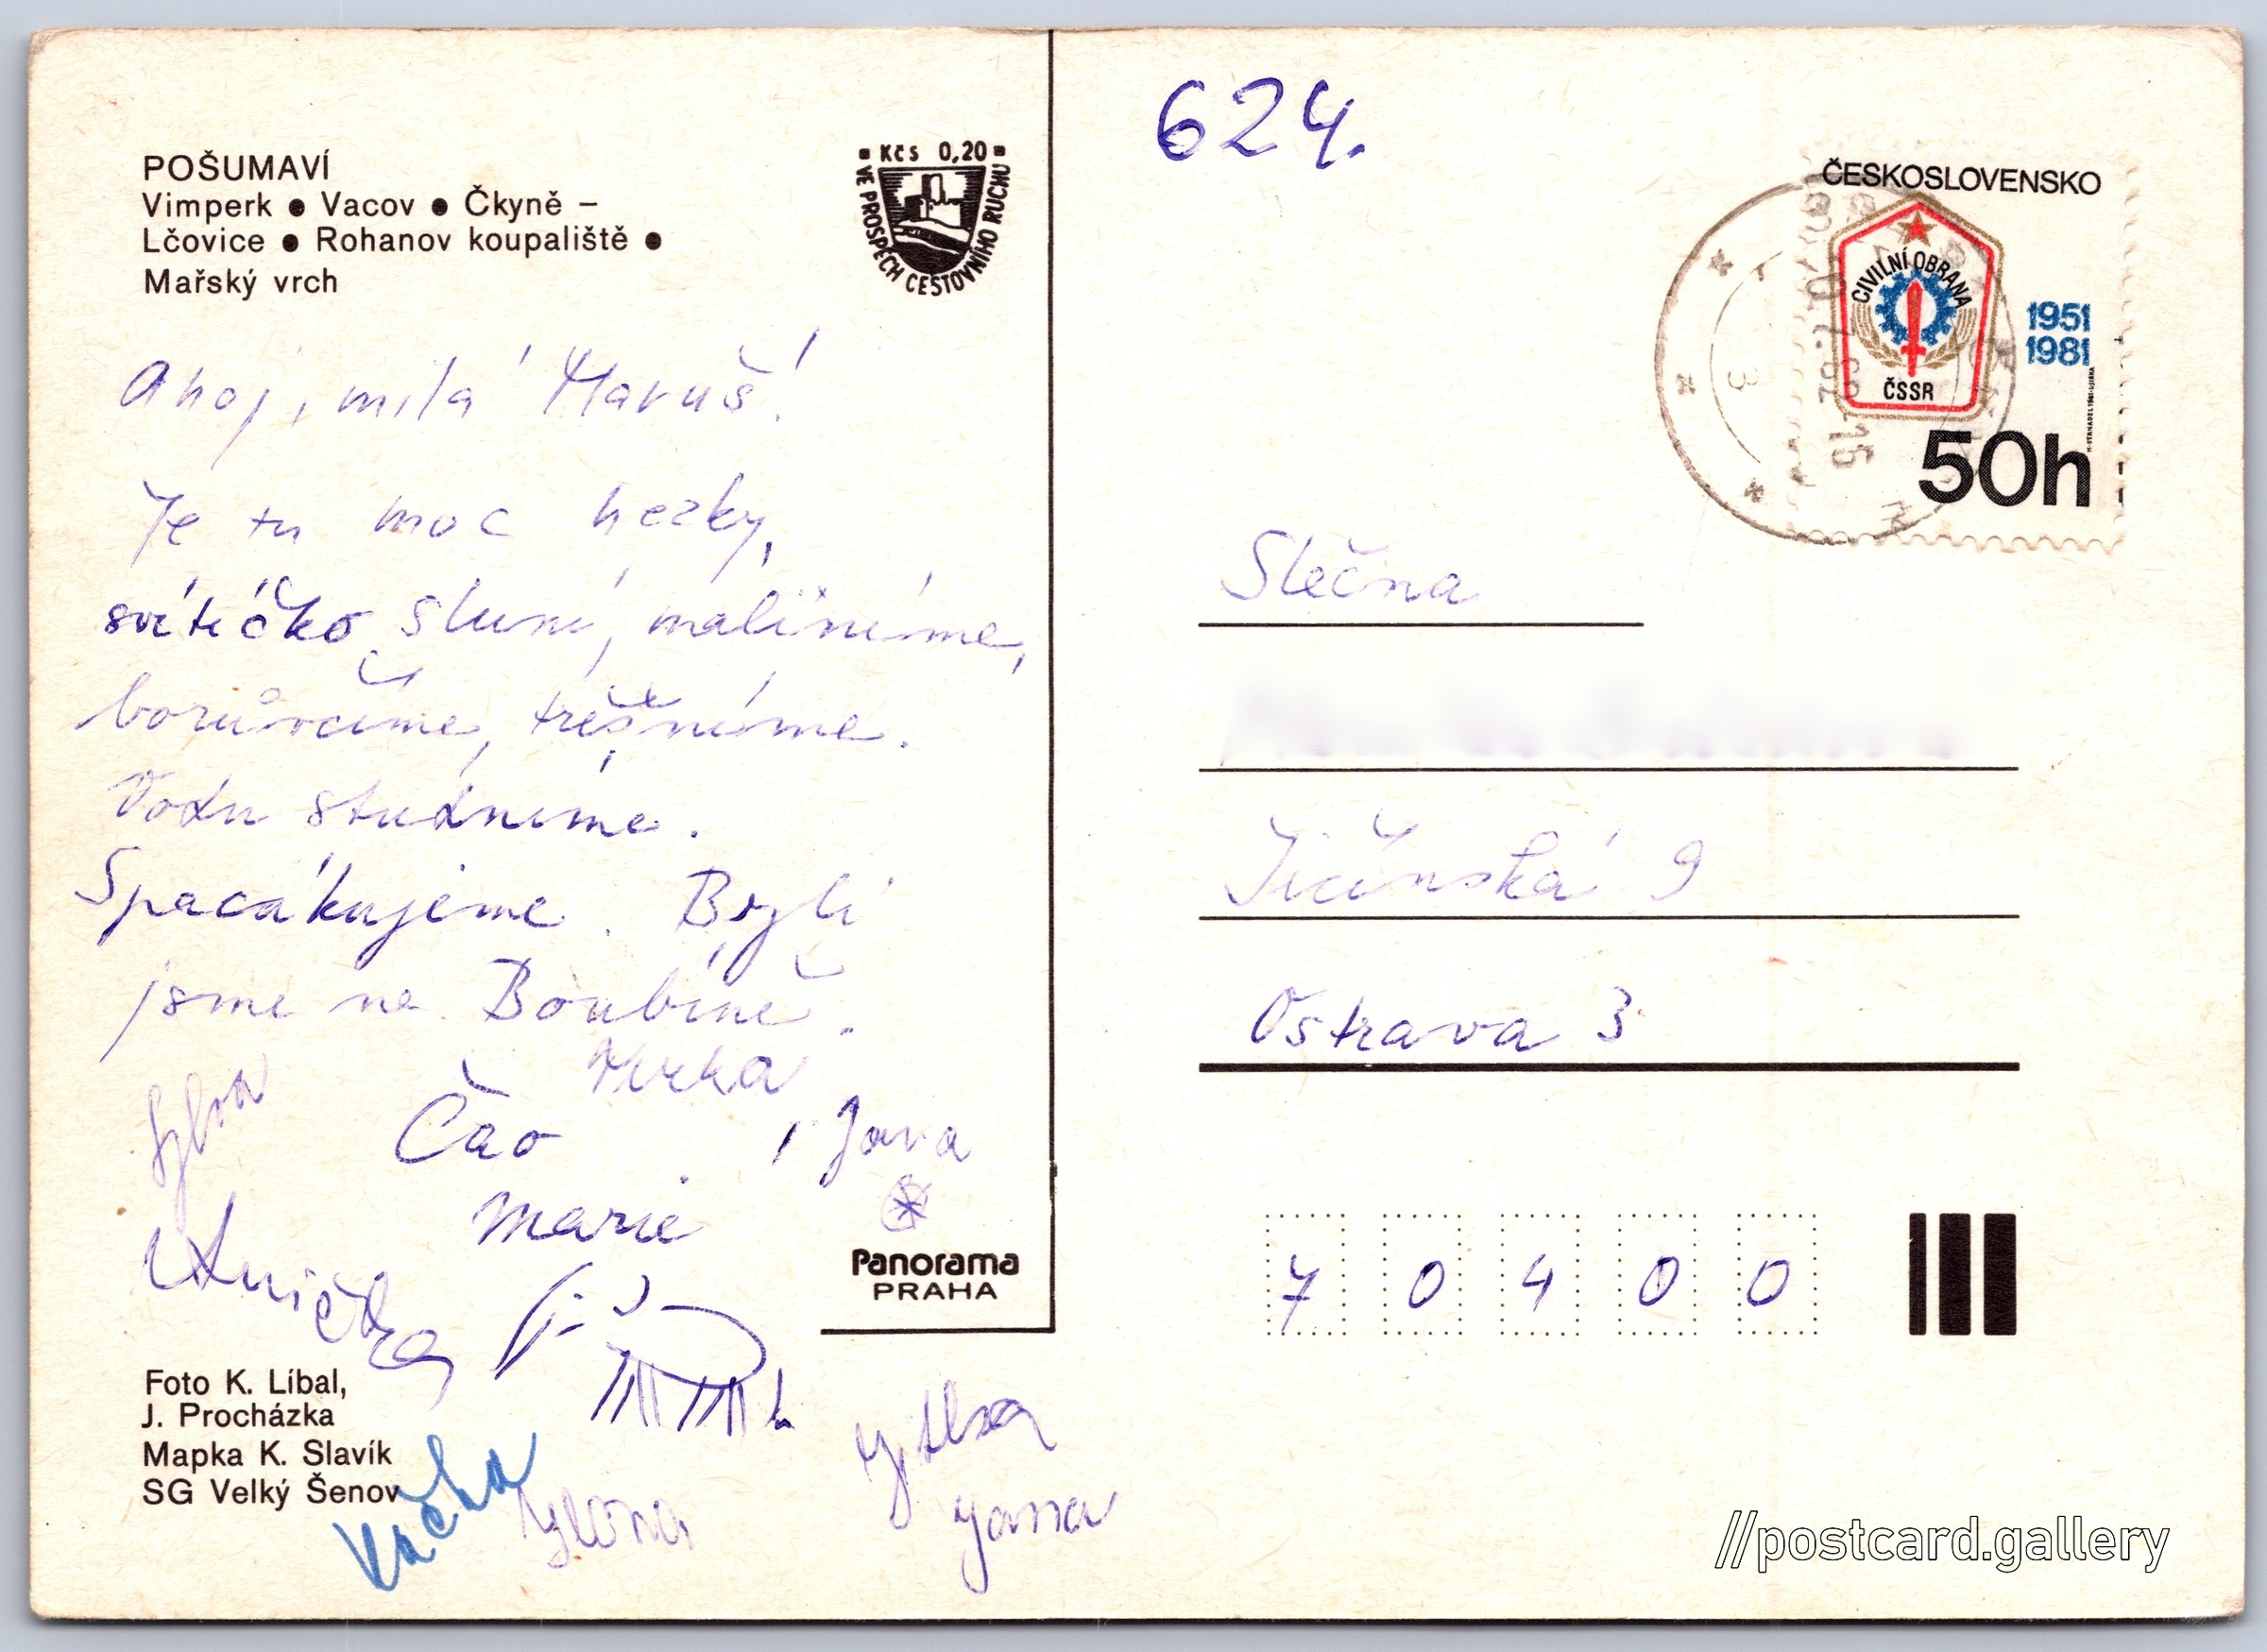 POŠUMAVÍ
Vimperk ● Vacov ● Čkyně –
Lčovice ● Rohanov koupaliště ●
Mařský vrch
Kčs 0,20
VE PROSPĚCH CESTOVNÍHO RUCHU
Ahoj, milá Maruš!
Je tu moc hezky,
svítíčko sluní, maliníme,
borůvčíme, třešníme.
Vodu studníme.
Spacákujeme. Byli
jsme na Boubíně.
Mirka
Sylva
Čao
, Jana
Marie
Anička
Panorama
PRAHA
Foto K. Líbal,
J. Procházka
Mapka K. Slavík
SG Velký Šenov
Ilona
Jitka
Jana
624.
ČESKOSLOVENSKO
CIVILNÍ OBRANA
ČSSR
1951
1981
50h
Slečna
Jičínská 9
Ostrava 3
7 0 4 0 0
//postcard.gallery